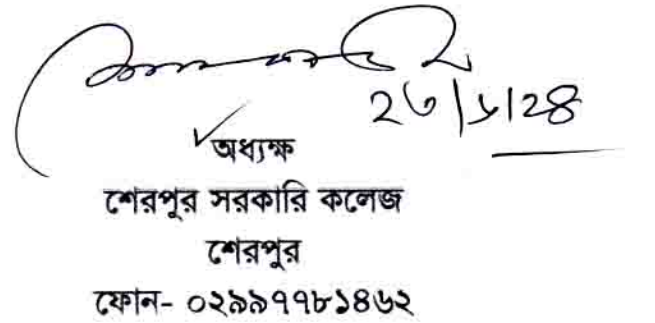 ২৩/১/২৪
অধ্যক্ষ
শেরপুর সরকারি কলেজ
শেরপুর
ফোন- ০২৯৯৭৭৮১৪৬২